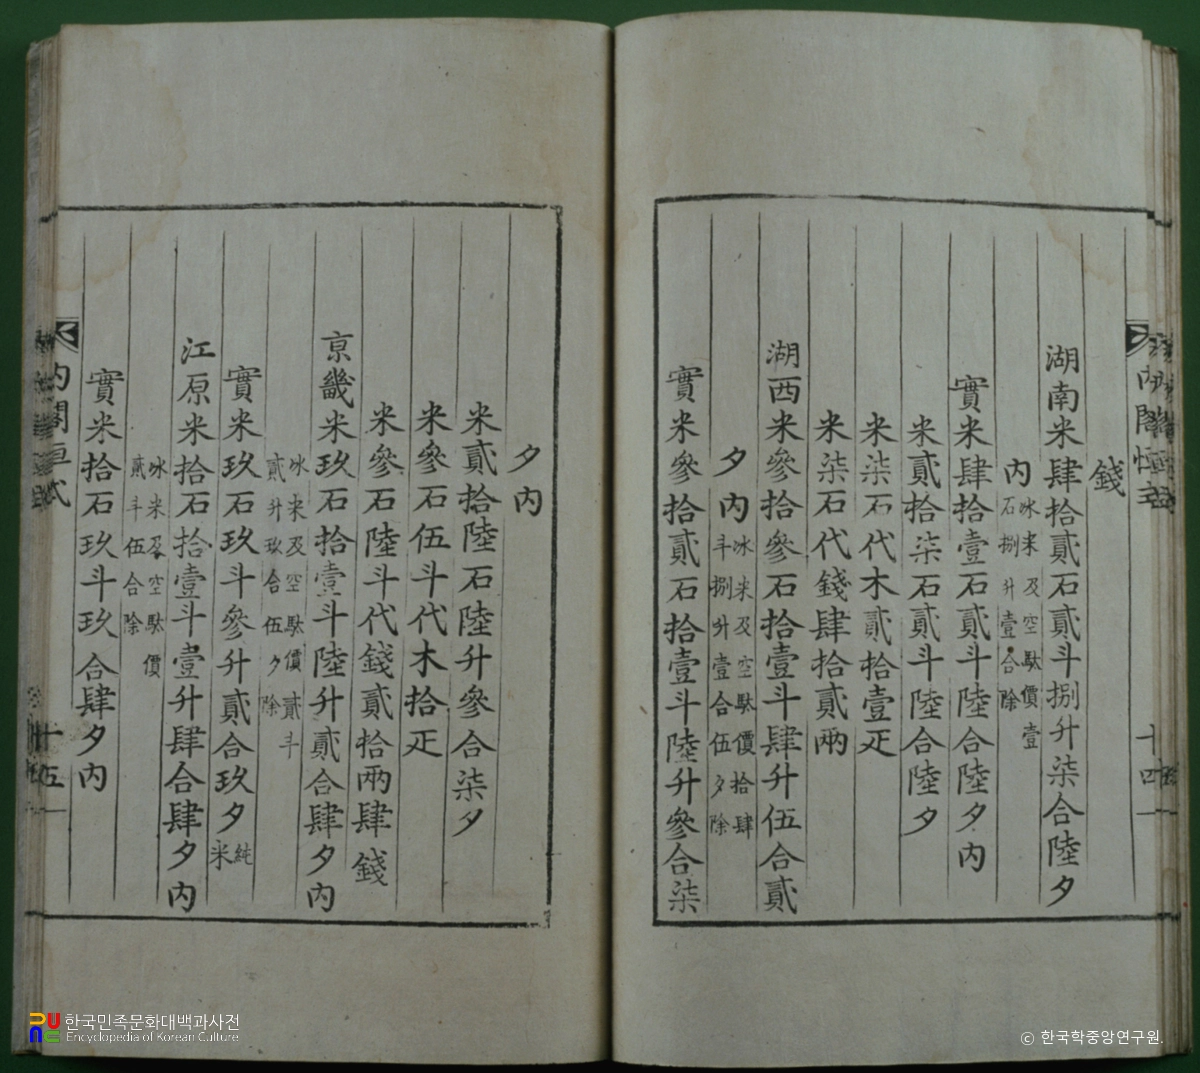 內閣恒式
十四
錢
湖南米肆拾貳石貳斗捌升柒合陸夕
內
氷米及空駄價壹
石捌升壹合除
實米肆拾壹石貳斗陸合陸夕內
米貳拾柒石貳斗陸合陸夕
米柒石代木貳拾壹疋
米柒石代錢肆拾貳兩
湖西米參拾參石拾壹斗肆升伍合貳
夕內
氷米及空駄價拾肆
斗捌升壹合伍夕除
實米參拾貳石拾壹斗陸升參合柒
夕內
米貳拾陸石陸升參合柒夕
米參石伍斗代木拾疋
米參石陸斗代錢貳拾兩肆錢
京畿米玖石拾壹斗陸升貳合肆夕內
氷米及空駄價貳斗
貳升玖合伍夕除
實米玖石玖斗參升貳合玖夕
純
米
江原米拾石拾壹斗壹升肆合肆夕內
氷米及空駄價
貳斗伍合除
實米拾石玖斗玖合肆夕內
內閣恒式
十五
한국민족문화대백과사전
Encyclopedia of Korean Culture
© 한국학중앙연구원.